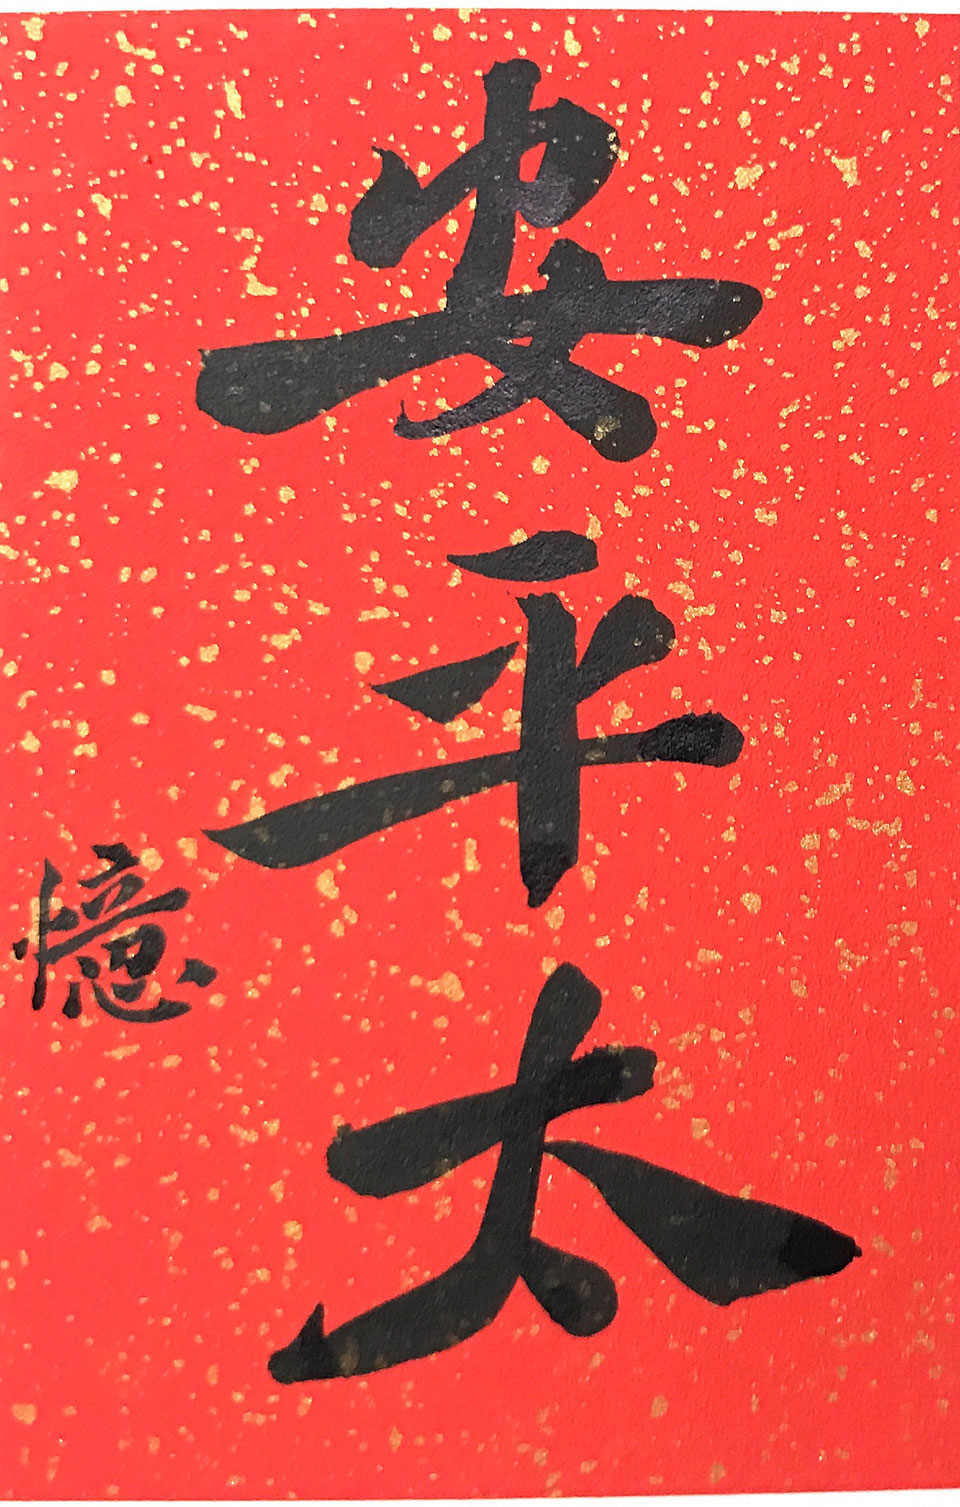 安平太
憶